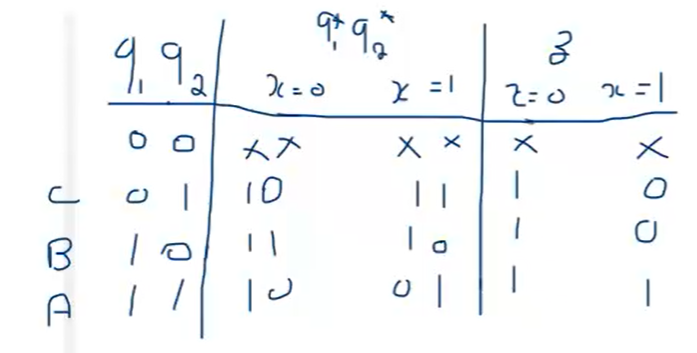 q₁* q₂* z
q₁ q₂ x=0 x=1 x=0 x=1
0 0 x x x x x x
C 0 1 1 0 1 1 1 0
B 1 0 1 1 1 0 1 0
A 1 1 1 0 0 1 1 1